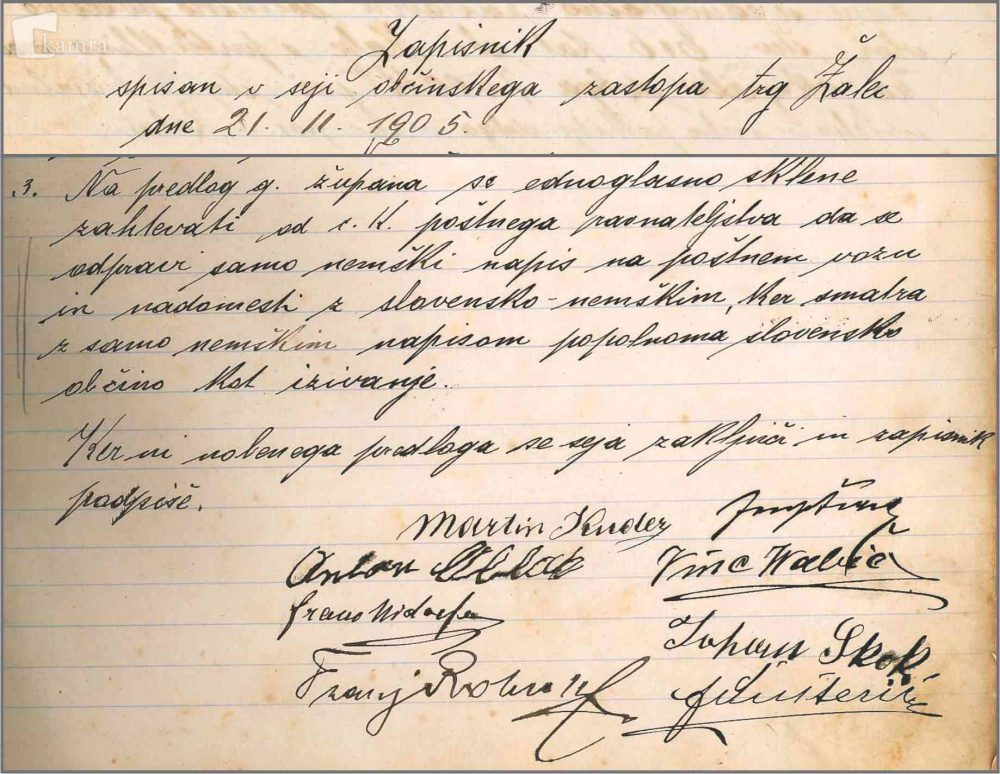 kamra
Zapisnik
spisan v seji občinskega zastopa trg Žalec
dne 21. 11. 1905.
3. Na predlog g. župana se ednoglasno sklene
zahtevati od c. k. poštnega ravnateljstva da se
odpravi samo nemški napis na poštnem vozu
in nadomesti z slovensko-nemškim, ker smatra
z samo nemškim napisom popolnoma slovensko
občino kot izivanje.
Ker ni nobenega predloga se seja zaključi in zapisnik
podpiše.
Martin Kuder
Anton
Vinc Vabič
Franc
Johann Skok
Franj